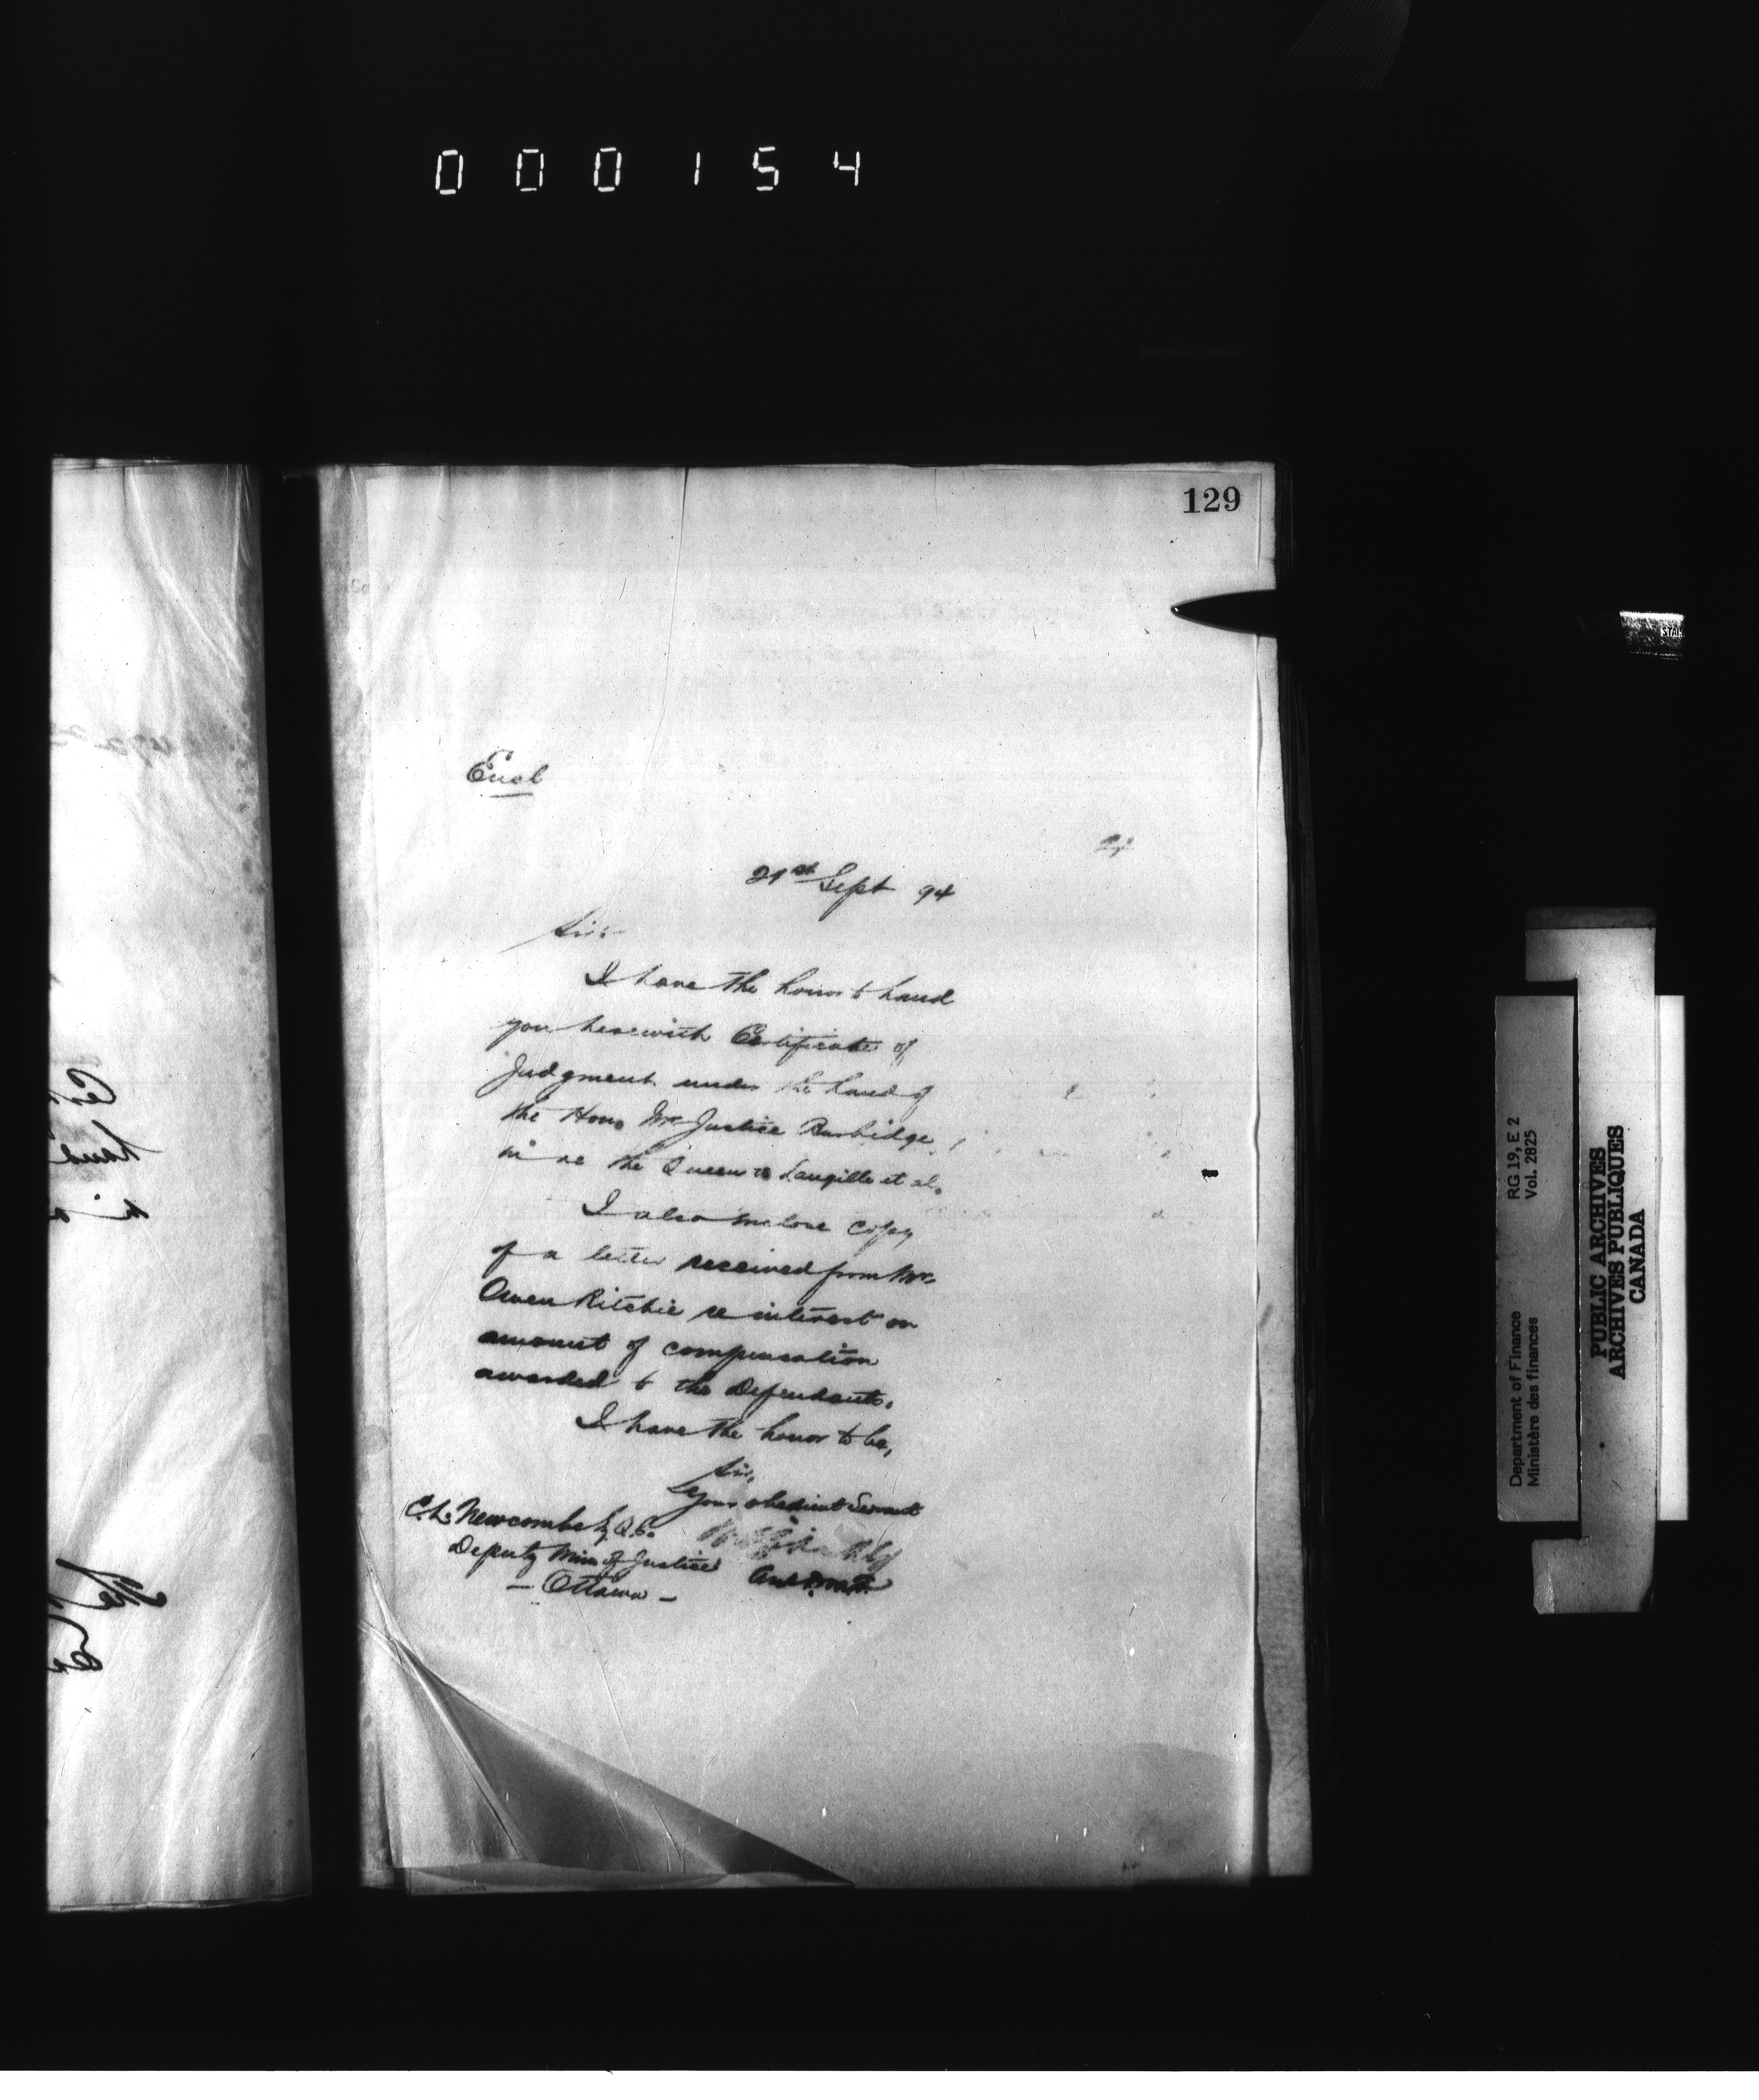 000154
129
Encl
21st Sept 94
Sir:-
I have the honor to hand
you herewith Certificate of
Judgment under the hand of
the Hon. Mr Justice Burbidge
in re the Queen vs Langille et al.
I also enclose copy
of a letter received from Mr
Owen Ritchie re interest on
amount of compensation
awarded to the Defendants.
I have the honor to be,
Sir,
Your obedient Servant
C. L. Newcombe Esq Q.C.
Deputy Min of Justice
- Ottawa -
Department of Finance RG 19, E 2
Ministère des finances Vol. 2825
PUBLIC ARCHIVES
ARCHIVES PUBLIQUES
CANADA